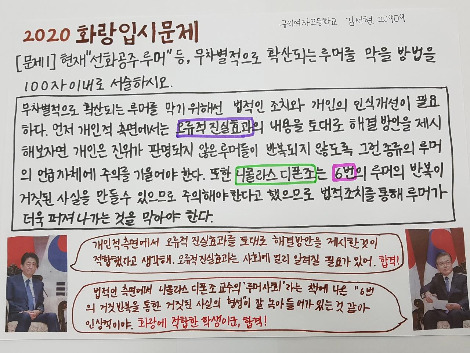 2020 화랑입시문제
[문제1] 현재 "선화공주 루머" 등, 무차별적으로 확산되는 루머를 막을 방법을
100자 이내로 서술하시오.
무차별적으로 확산되는 루머를 막기 위해선 법적인 조치와 개인의 인식개선이 필요
하다. 먼저 개인적 측면에서는 오류적 진실효과의 내용을 토대로 해결 방안을 제시
해보자면 개인은 진위가 판명되지 않은 루머들이 반복되지 않도록, 그런 종류의 루머
의 언급 자체에 주의를 기울여야 한다. 또한 니콜라스 디폰조는 6번의 루머의 반복이
거짓된 사실을 만들 수 있으므로 주의해야 한다고 했으므로 법적조치를 통해 루머가
더욱 퍼져나가는 것을 막아야 한다.
개인적 측면에서 오류적 진실효과를 토대로 해결방안을 제시한 것이
적합했다고 생각해. 오류적 진실효과는 사회에 널리 알려질 필요가 있어. 합격!
법적인 측면에서 니콜라스 디폰조 교수의 '루머사회'라는 책에 나온 "6번
의 거짓 반복을 통한 거짓된 사실의 형성이 잘 녹아들어가 있는 것 같아
인상적이야. 화랑에 적합한 학생이군, 합격!